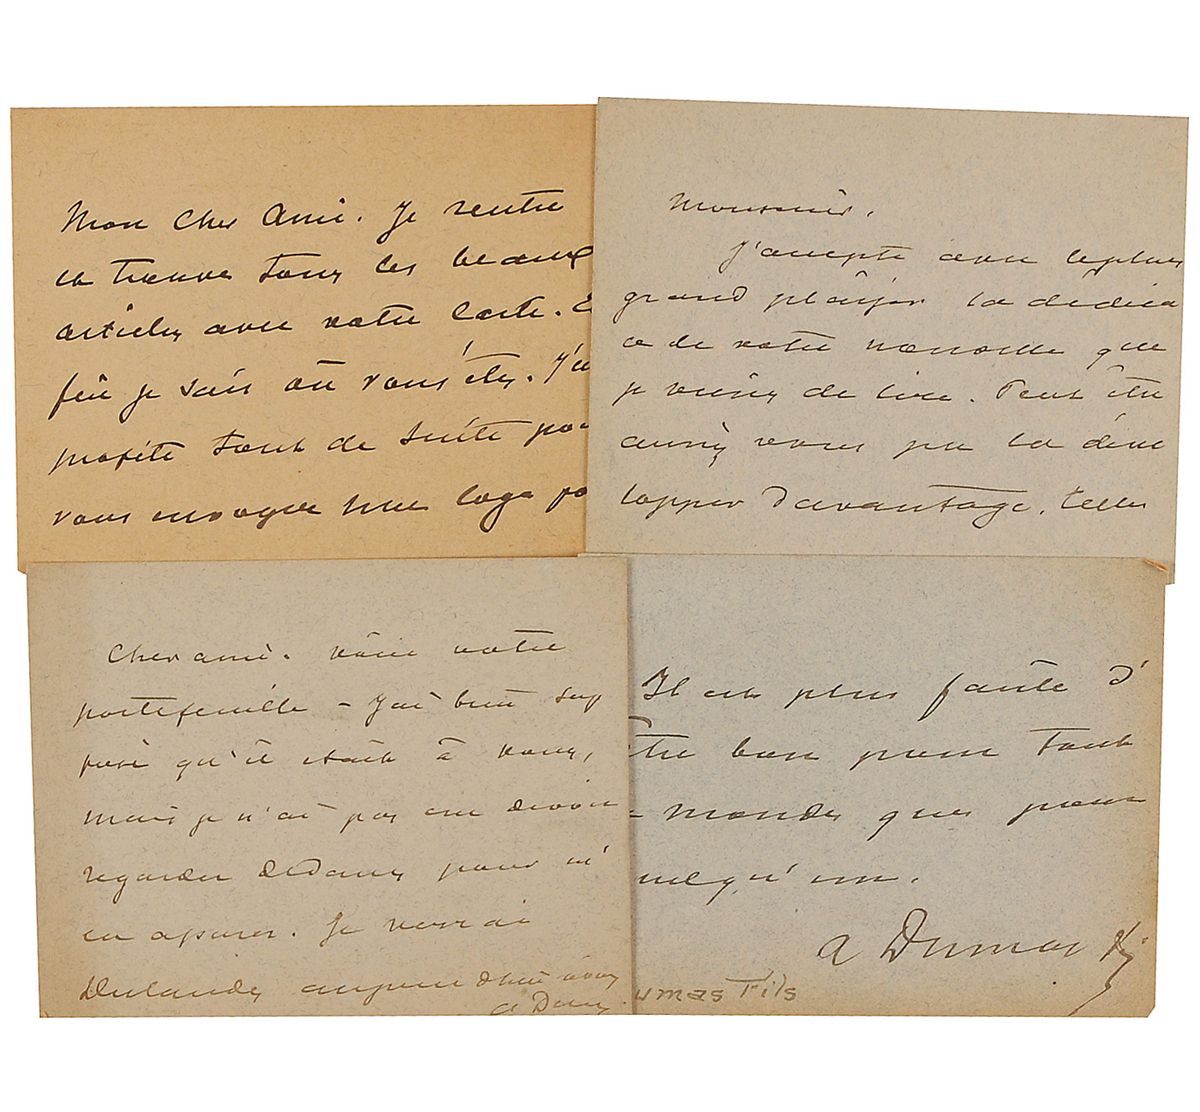 Mon cher Ami. Je rentre
et trouve tous les beaux
articles avec votre carte. E
fin je sais où vous êtes. J'e
profite tout de suite pou
vous envoyer une loge po
Monsieur.
J'accepte avec le plus
grand plaisir la dédica
ce de votre nouvelle que
je viens de lire. Peut être
auriez vous pu la déve
lopper davantage. telle
Cher ami. voici votre
portefeuille – J'ai bien sup
posé qu'il était à vous,
mais je n'ai pas cru devoir
regarder dedans pour m'
en assurer. Je verrai
Deslandes aujourd'hui
A Dum
Il est plus facile d'
être bon pour tout
e monde que pour
quelqu'un.
A Dumas fils
umas Fils